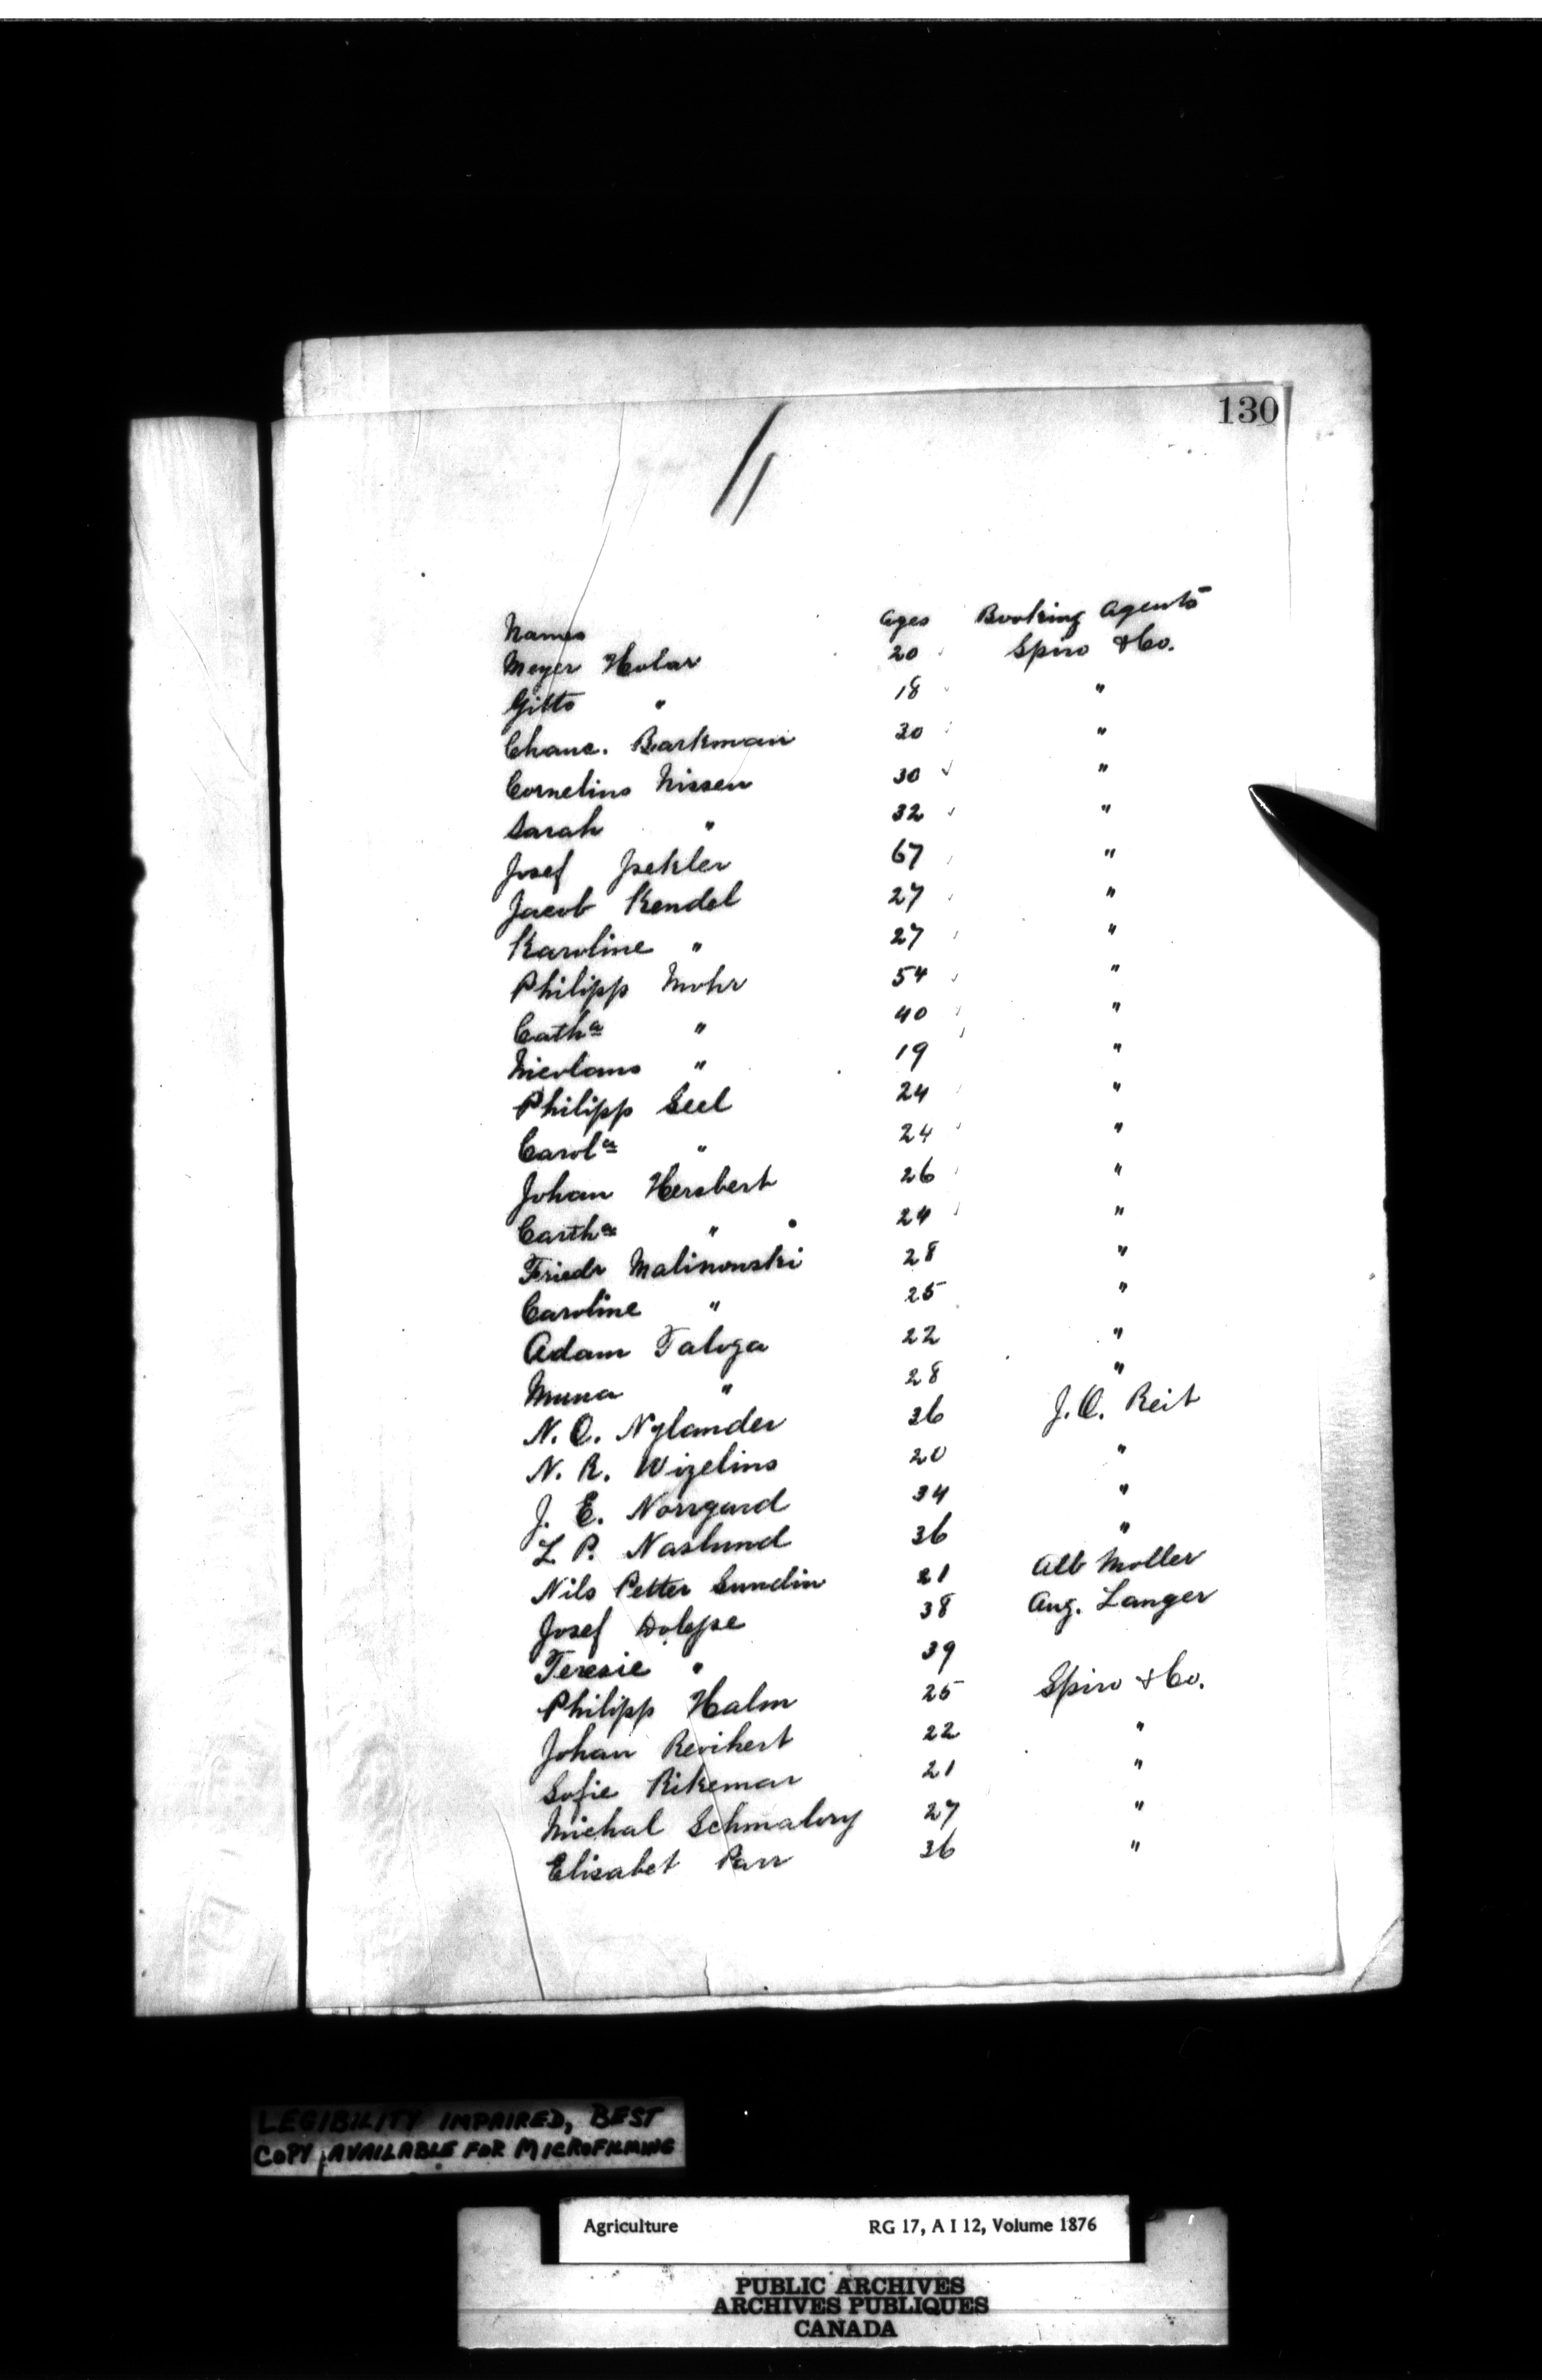 130
Names Ages Booking Agents
Meyer Holar 20 Spiro & Co.
Gitto " 18 "
Chane. Barkman 30 "
Cornelius Nissen 30 "
Sarah " 32 "
Josef Jsekler 67 "
Jacob Kendel 27 "
Karoline " 27 "
Philipp Mohr 54 "
Catha " 40 "
Nicolaus " 19 "
Philipp Seel 24 "
Carola " 24 "
Johan Hersbert 26 "
Cartha " 24 "
Friedr Malinowski 28 "
Caroline " 25 "
Adam Taloga 22 "
Muna " 28 "
N. O. Nylander 36 J. O. Reit
N. R. Wizelins 20 "
J. E. Norrgard 34 "
L. P. Naslund 36 "
Nils Petter Sundin 21 Alb Moller
Josef 38 Aug. Langer
Teresie " 39
Philipp Halm 25 Spiro & Co.
Johan 22 "
Sofie Rikemar 21 "
Michal Schmalory 27 "
Elisabet Parr 36 "
LEGIBILITY IMPAIRED, BEST
COPY AVAILABLE FOR MICROFILMING
Agriculture RG 17, A I 12, Volume 1876
PUBLIC ARCHIVES
ARCHIVES PUBLIQUES
CANADA